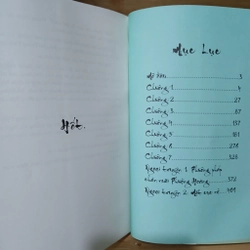 Hết.
Mục Lục
Chương 1 4
Chương 2 27
Chương 3 87
Chương 4 137
Chương 5 181
Chương 6 278
Chương 7 328
Ngoại truyện 1: Phương pháp
Ngoại truyện 2: